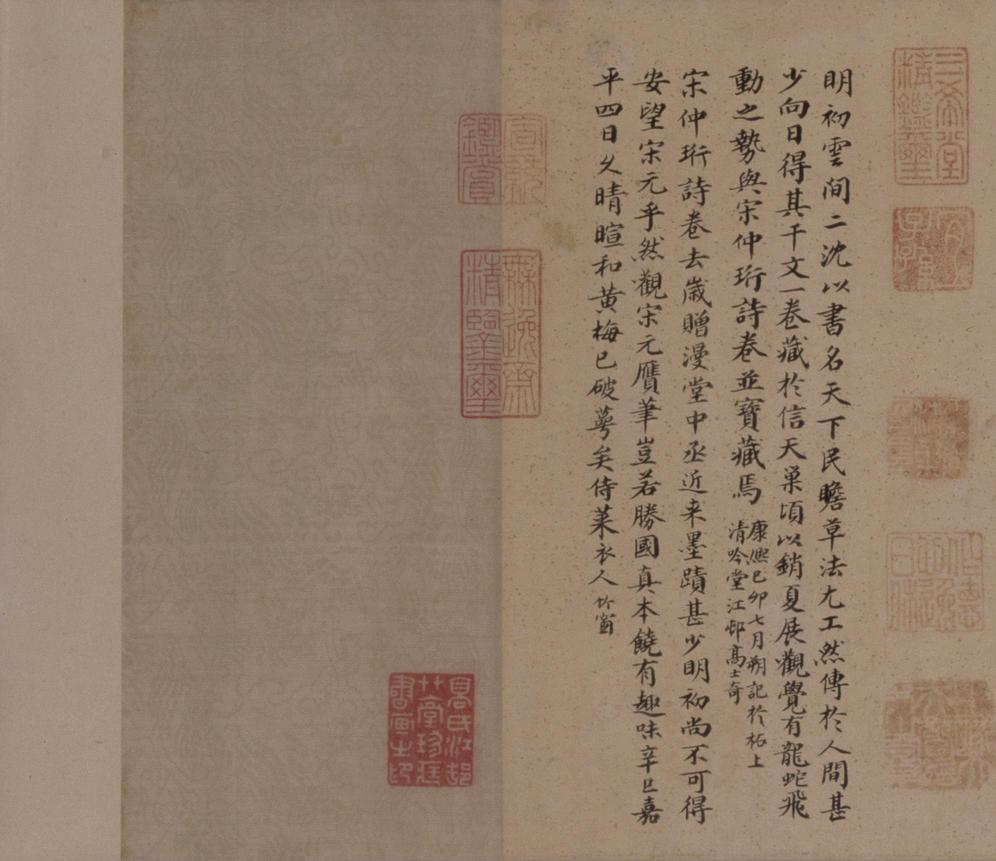 明初雲間二沈以書名天下民瞻草法尤工然傳於人間甚
少向日得其千文一卷藏於信天巢頃以銷夏展觀覺有龍蛇飛
動之勢與宋仲珩詩卷並寶藏焉
康熙己卯七月朔記於柘上
清吟堂江邨高士奇
宋仲珩詩卷去歲贈漫堂中丞近来墨蹟甚少明初尚不可得
安望宋元乎然觀宋元贋筆豈若勝國真本饒有趣味辛巳嘉
平四日久晴暄和黄梅已破萼矣侍萊衣人竹窗
三希堂
精鑑璽
宜子孫
無逸齋
精鑒璽
高氏江邨
草堂珍藏
書画之印